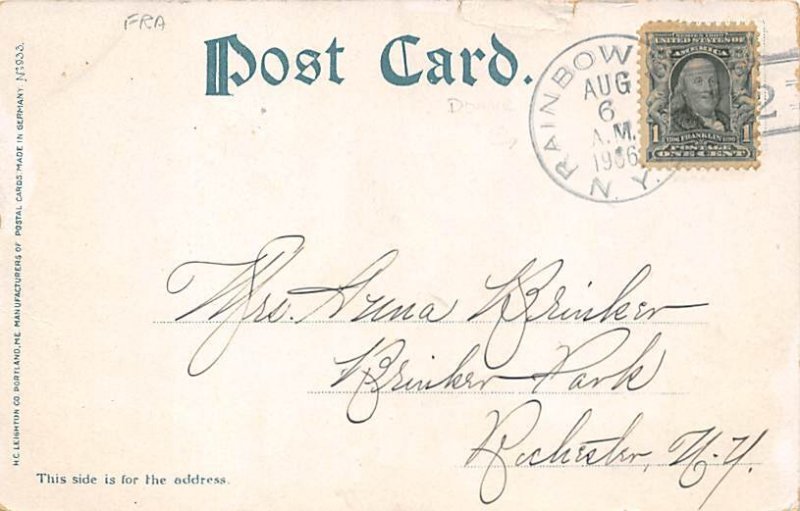 FRA
Post Card.
RAINBOW
AUG
6
A.M.
1906
N.Y.
2
UNITED STATES OF
AMERICA
1 FRANKLIN 1
POSTAGE
ONE CENT
Mrs. Anna Brinker
Brinker Park
Rochester, N.Y.
This side is for the address.
H.C. LEIGHTON CO. PORTLAND, ME. MANUFACTURERS OF POSTAL CARDS MADE IN GERMANY. No 933.